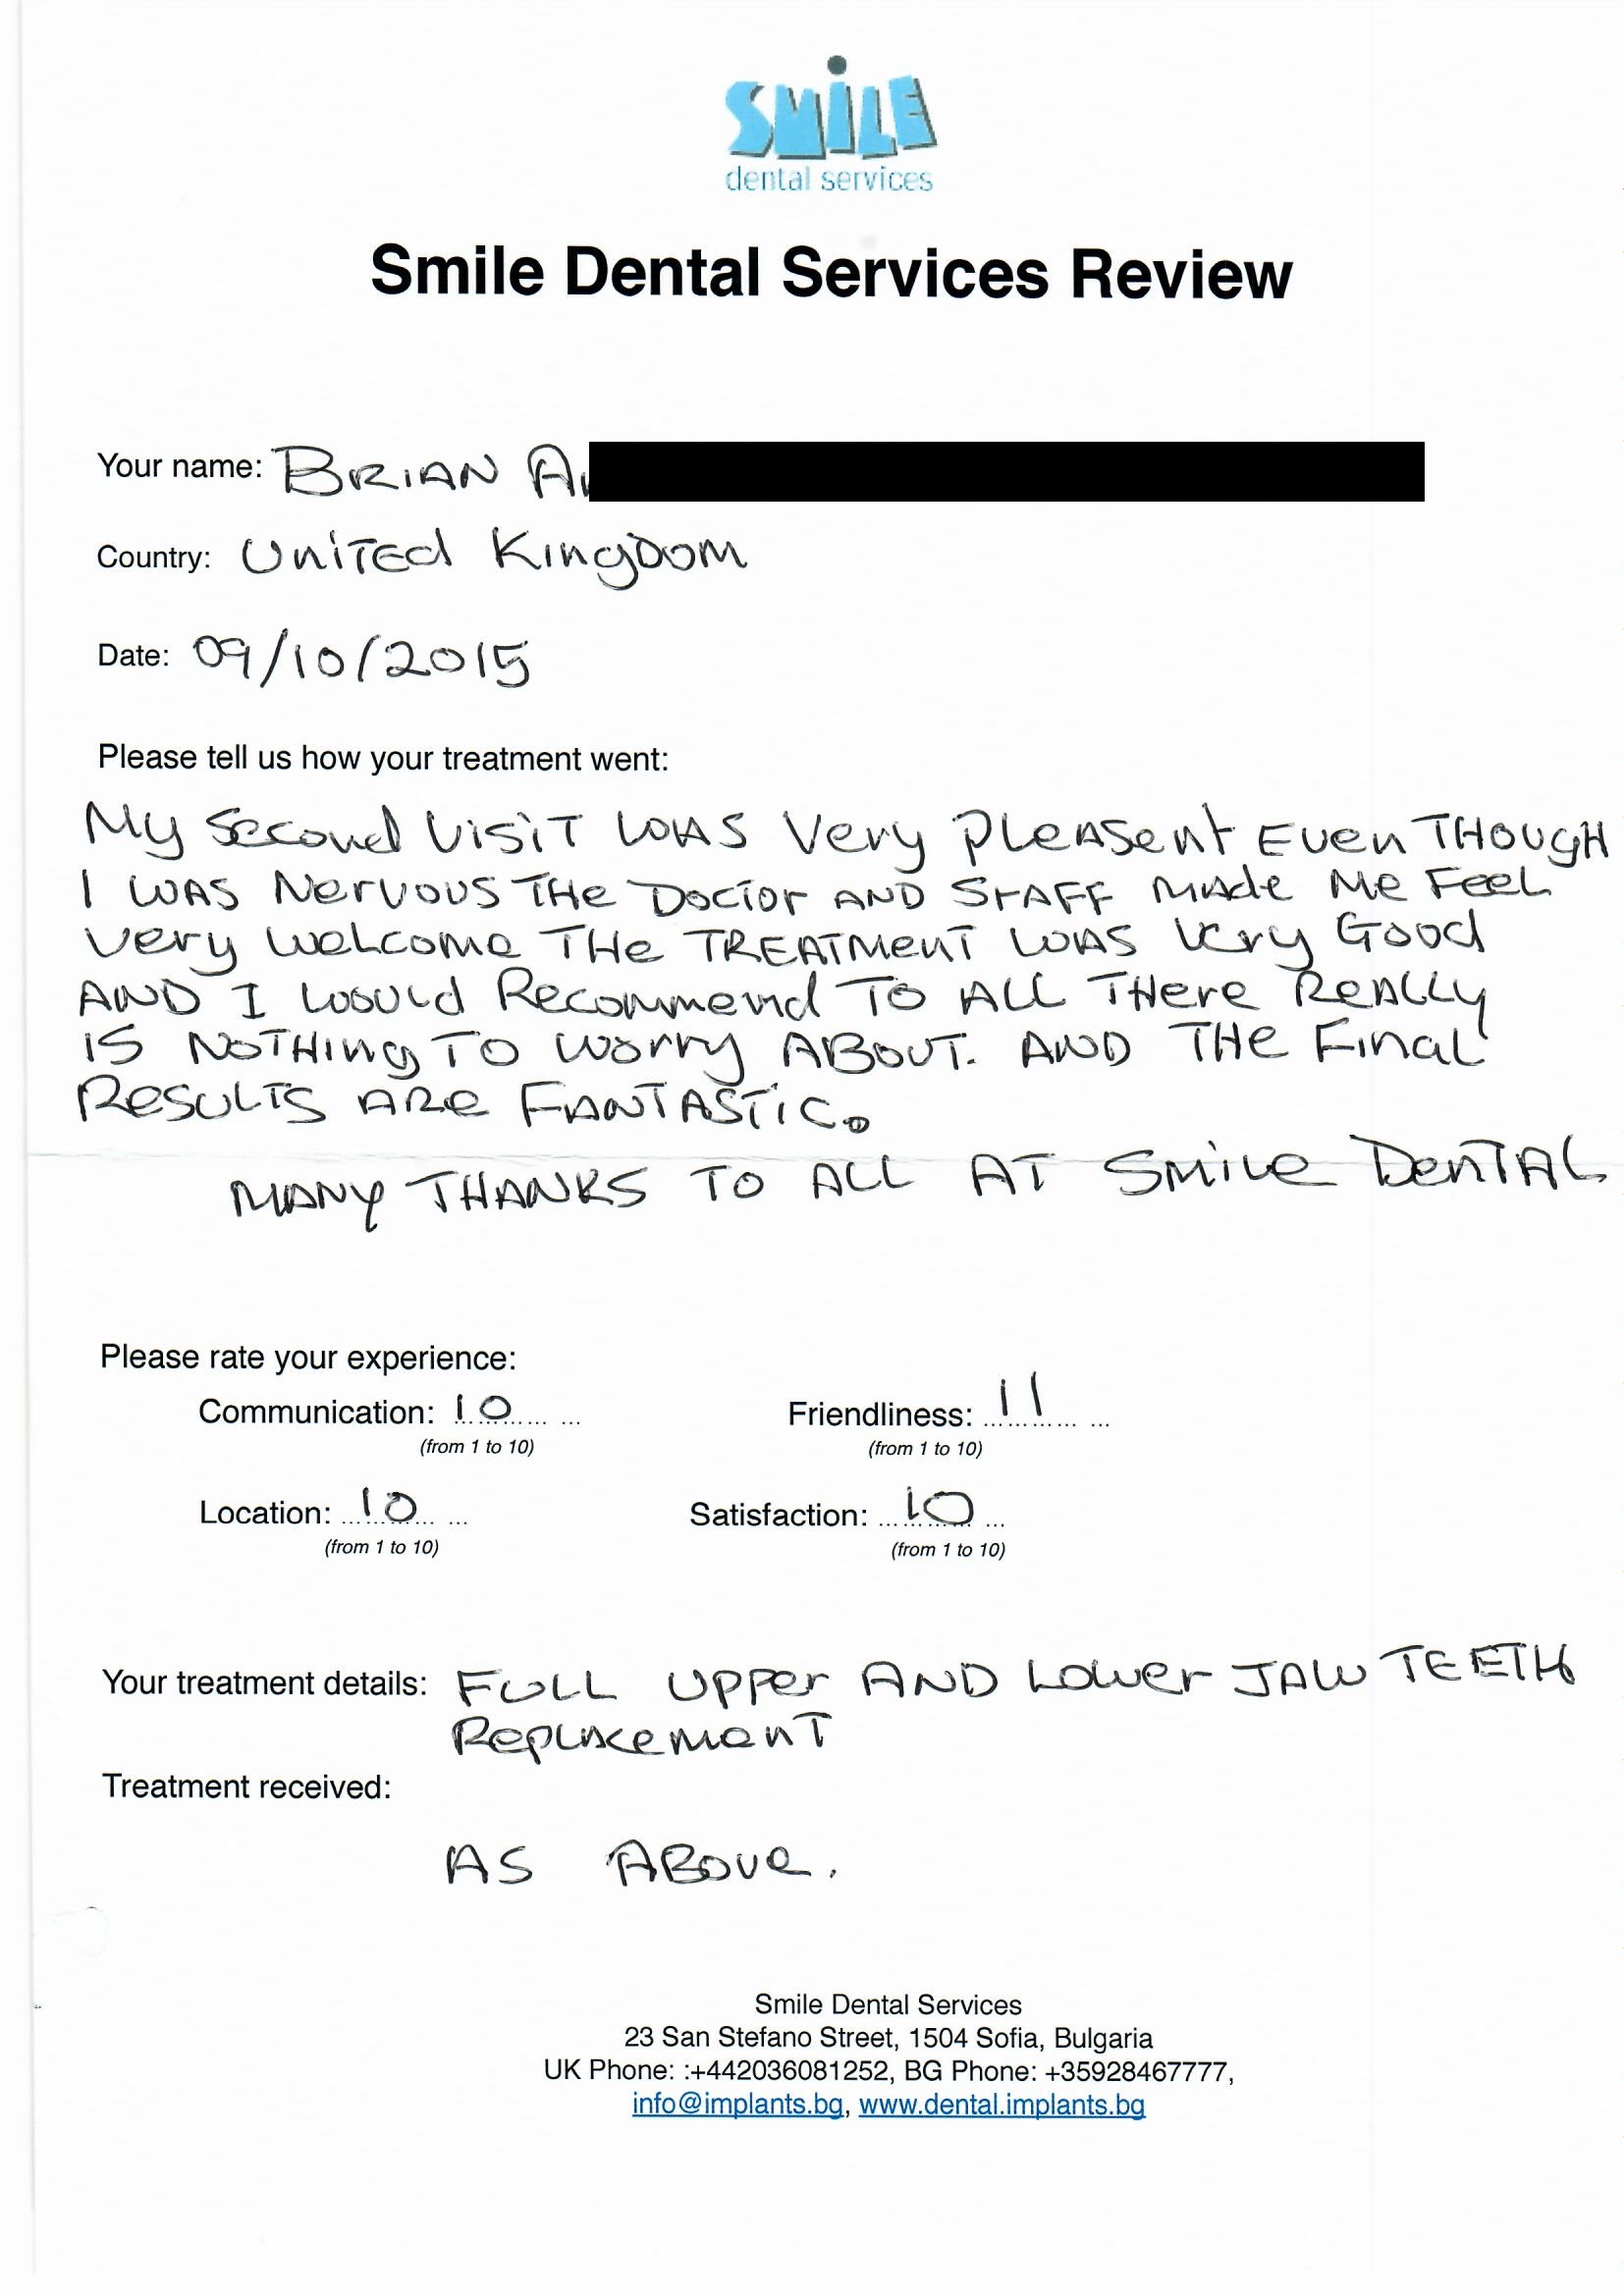 SMiLE
dental services
Smile Dental Services Review
Your name: BRIAN A
Country: United Kingdom
Date: 09/10/2015
Please tell us how your treatment went:
My Second Visit WAS Very PLeASent Even THOUGH
I WAS Nervous THe Doctor AND STAFF Made Me Feel
Very WeLcome THe TREATMenT WAS Very Good
AND I Would Recommend TO ALL THere ReALLy
IS NOTHing TO Worry ABOUT. AND THe Final
RESULTS ARe FANTASTiC.
MANY THANKS TO ALL AT SMiLe DenTAL
Please rate your experience:
Communication: 10 Friendliness: 11
(from 1 to 10) (from 1 to 10)
Location: 10 Satisfaction: 10
(from 1 to 10) (from 1 to 10)
Your treatment details: FULL UPPer AND Lower JAW TEETH
RepLacemenT
Treatment received:
AS ABove.
Smile Dental Services
23 San Stefano Street, 1504 Sofia, Bulgaria
UK Phone: :+442036081252, BG Phone: +35928467777,
info@implants.bg, www.dental.implants.bg